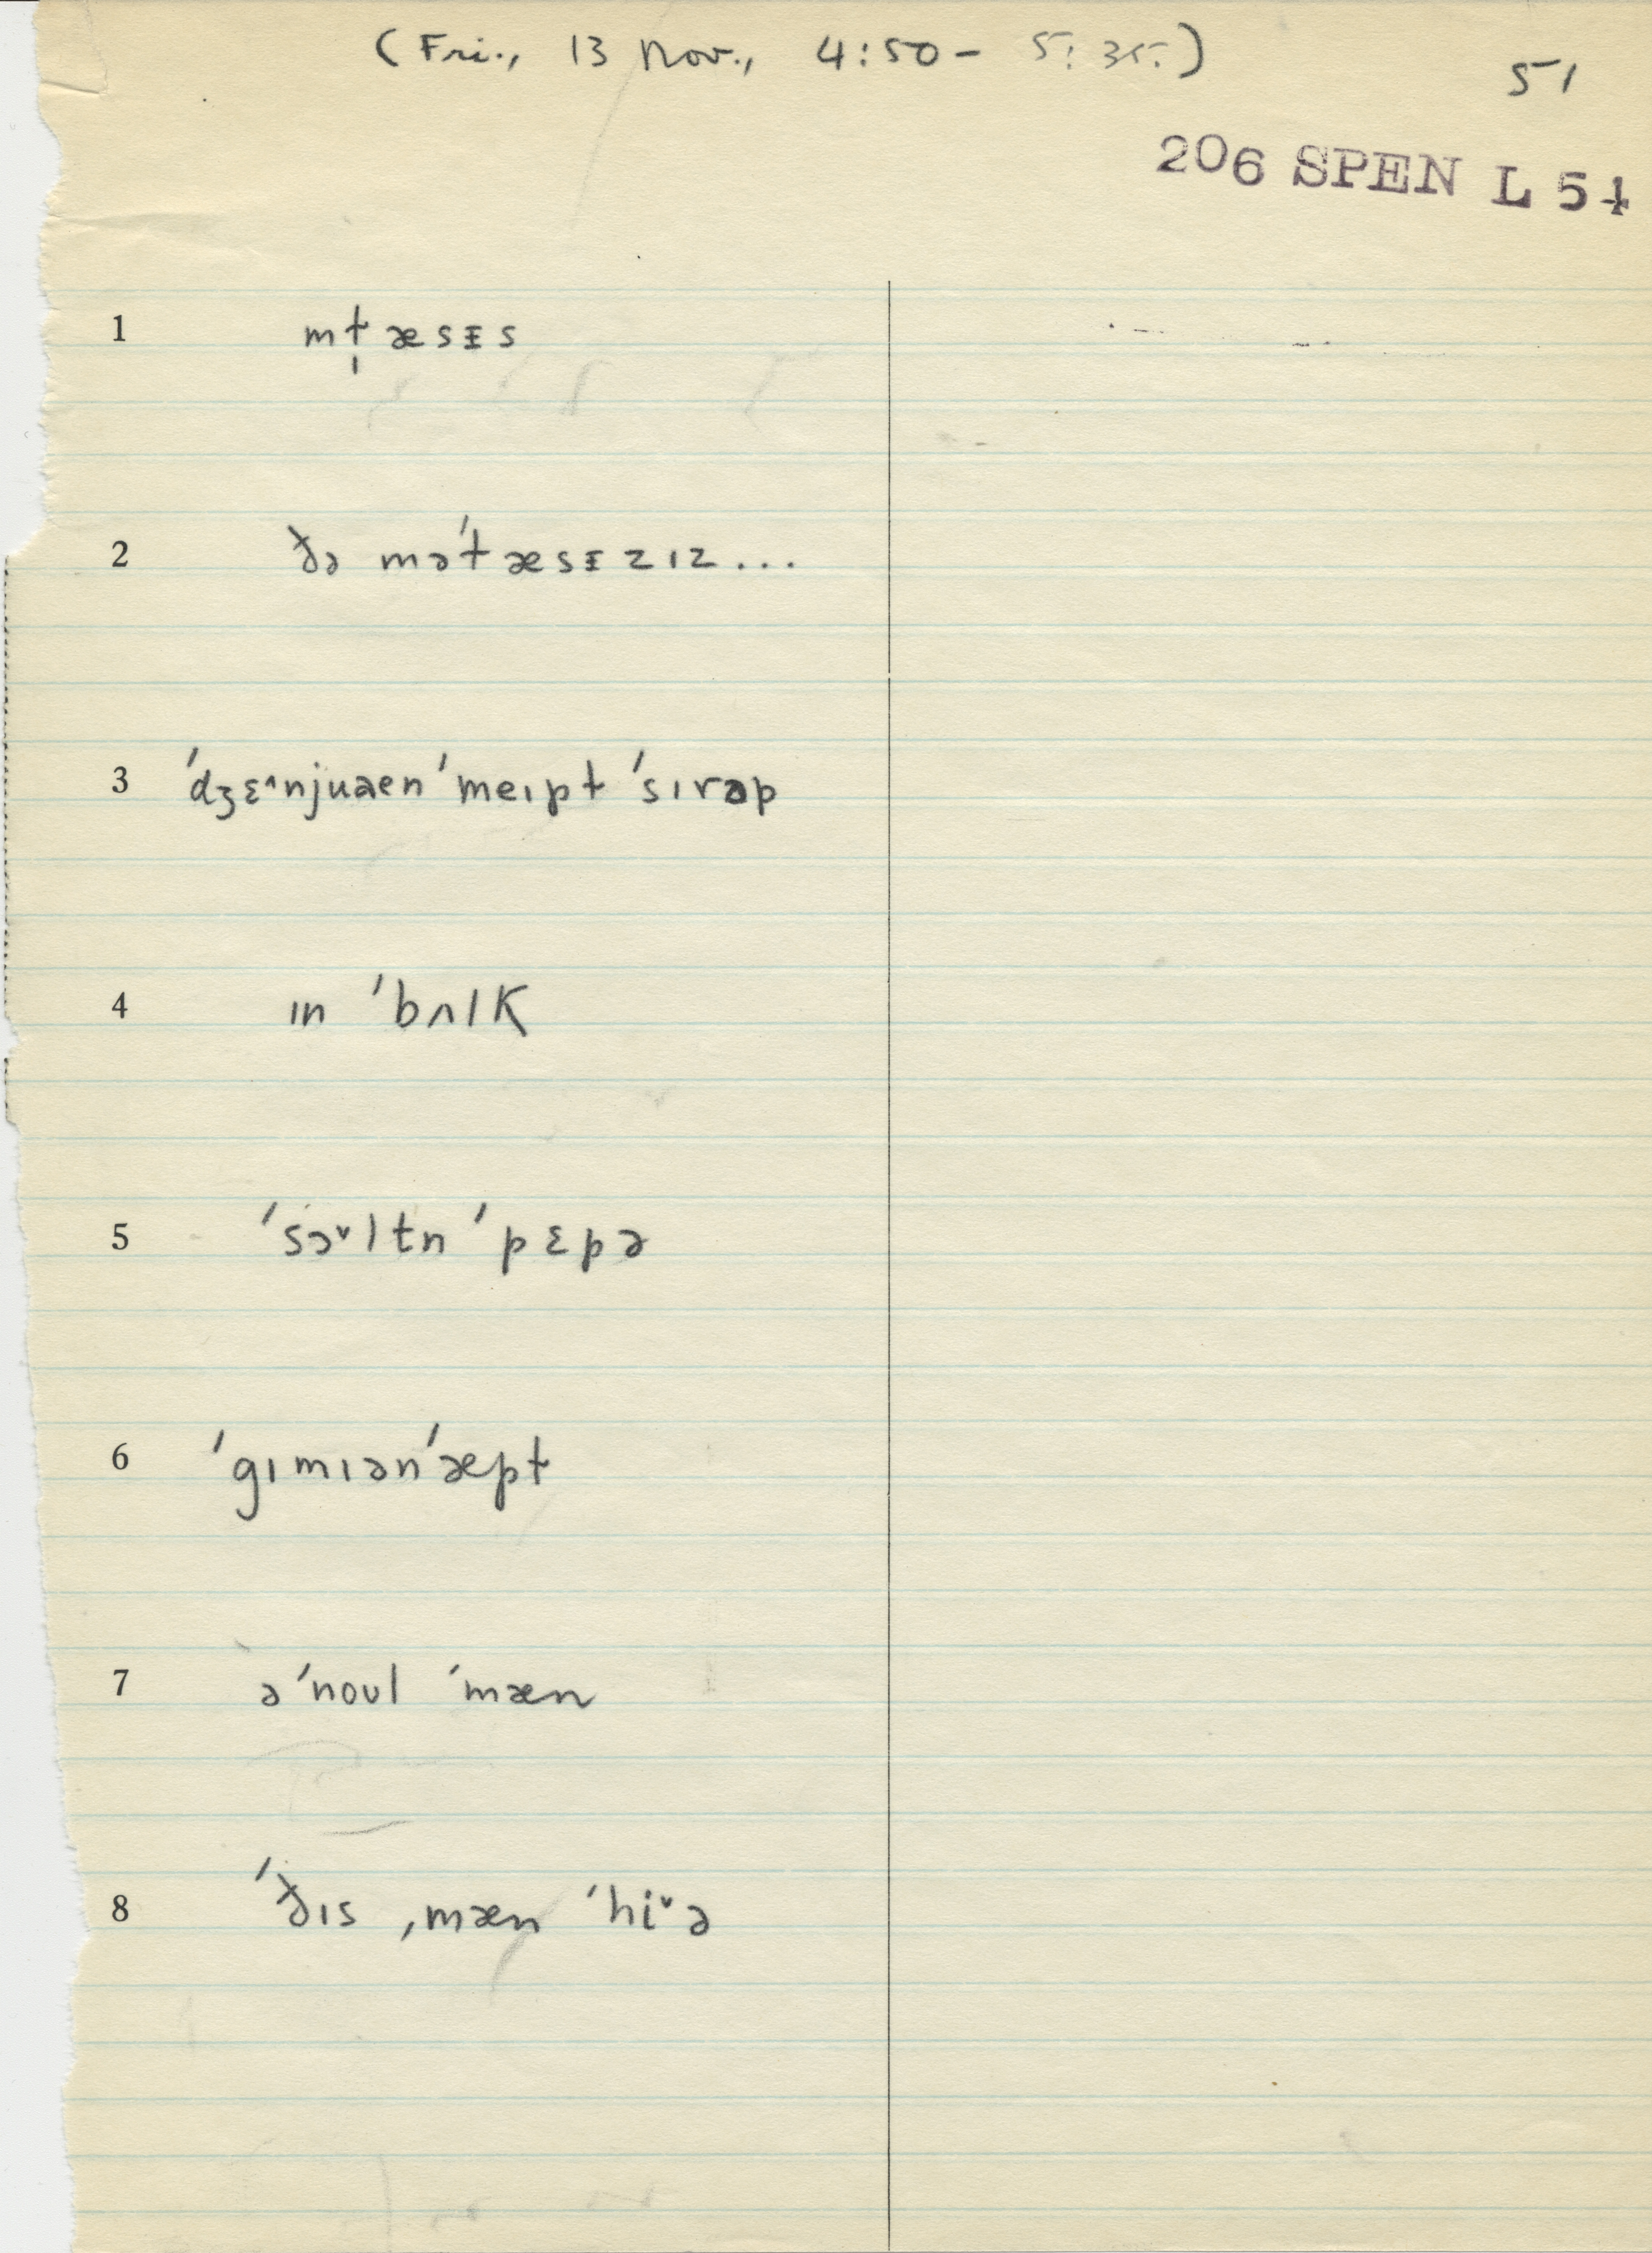 (Fri., 13 Nov., 4:50 - 5:35.)
51
206 SPEN L 51
1 mt̩æsᵻs
2 ðə məˈtæsᵻzɪz...
3 ˈdʒɛ^njuənˈmeɪpt ˈsɪrəp
4 ɪn ˈbʌlk
5 ˈsɔˇltn ˈpɛpə
6 ˈgɪmɪənˈæpt
7 əˈnoʊl ˈmæn
8 ˈðɪs ˌmæn ˈhiˇə